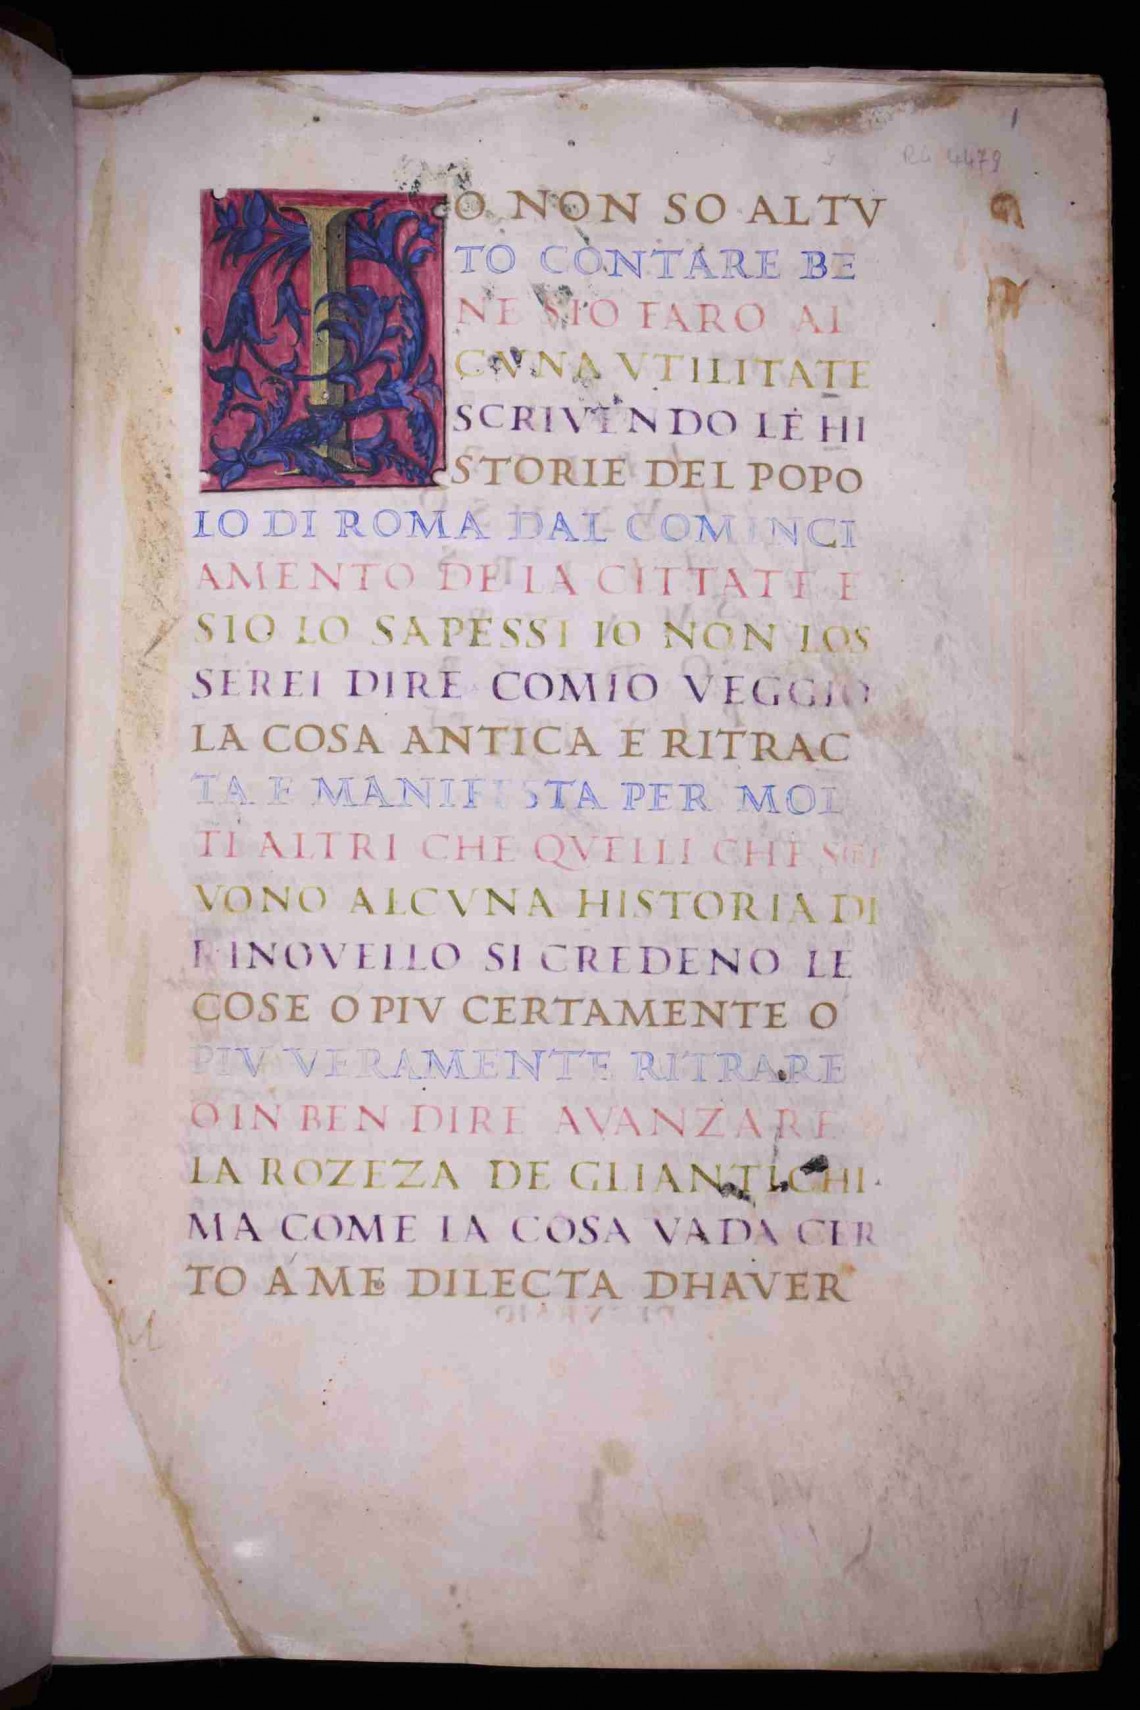 1
R4 4479
IO NON SO ALTV
TO CONTARE BE
NE SIO FARO AL
CVNA VTILITATE
SCRIVENDO LE HI
STORIE DEL POPO
LO DI ROMA DAL COMINCI
AMENTO DE LA CITTATE E
SIO LO SAPESSI IO NON LOS
SEREI DIRE COMIO VEGGIO
LA COSA ANTICA E RITRAC
TA E MANIFESTA PER MOL
TI ALTRI CHE QVELLI CHE SCRI
VONO ALCVNA HISTORIA DI
RINOVELLO SI CREDENO LE
COSE O PIV CERTAMENTE O
PIV VERAMENTE RITRARE
O IN BEN DIRE AVANZARE
LA ROZEZA DE GLIANTICHI.
MA COME LA COSA VADA CER
TO A ME DILECTA DHAVER